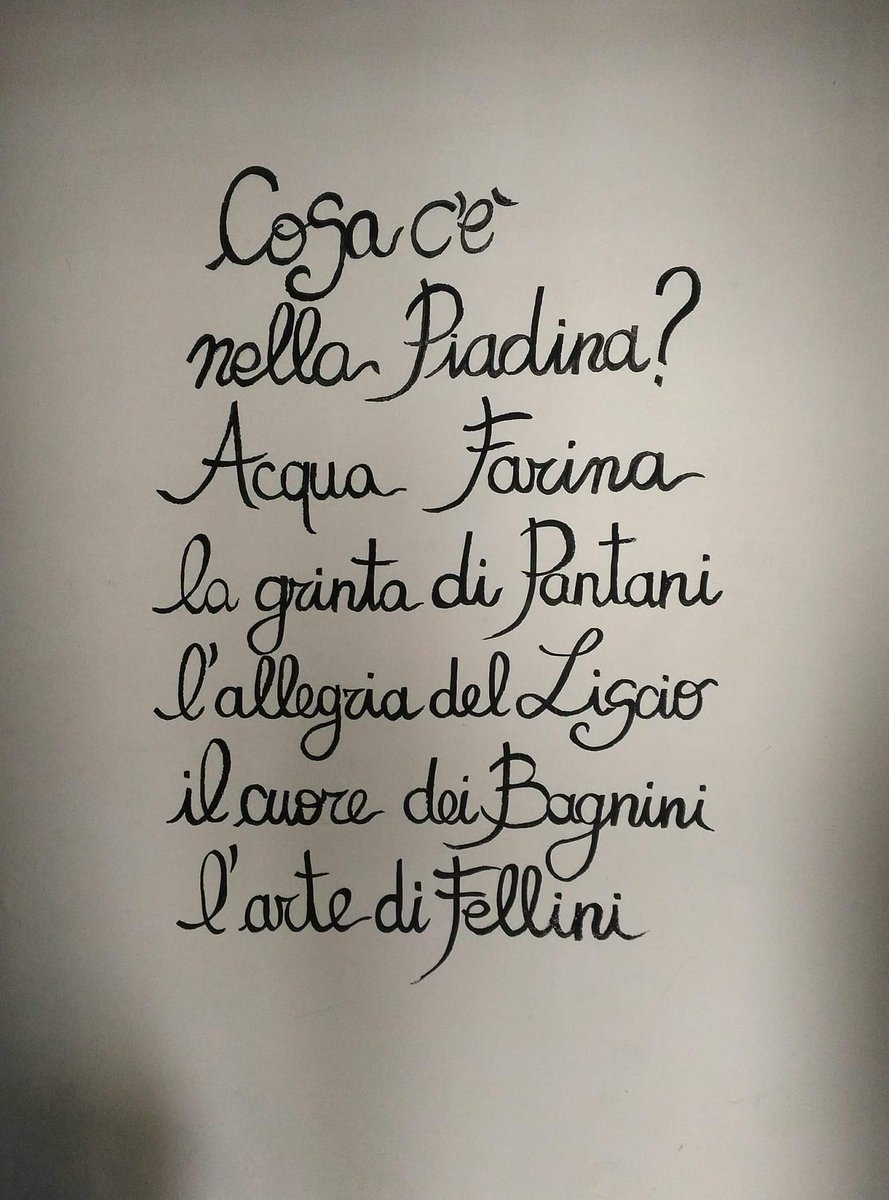 Cosa c'è
nella Piadina?
Acqua Farina
la grinta di Pantani
l'allegria del Liscio
il cuore dei Bagnini
l'arte di Fellini